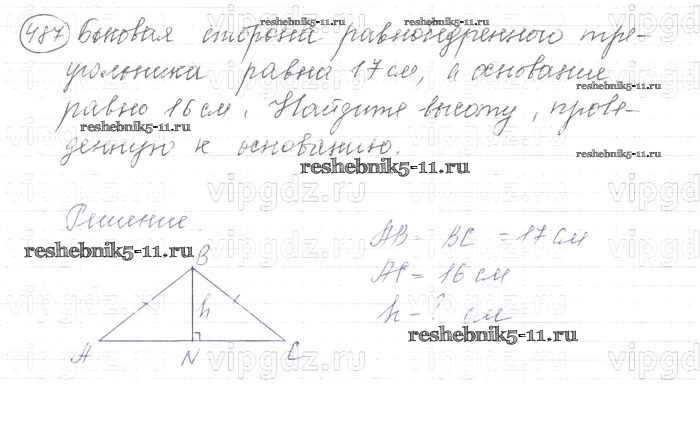 487 Боковая сторона равнобедренного тре-
угольника равна 17 см, а основание
равно 16 см. Найдите высоту, прове-
денную к основанию.
reshebnik5-11.ru
reshebnik5-11.ru
reshebnik5-11.ru
reshebnik5-11.ru
reshebnik5-11.ru
Решение.
reshebnik5-11.ru
AB = BC = 17 см
AC = 16 см
h - ? см
reshebnik5-11.ru
B
h
A N C
vipgdz.ru